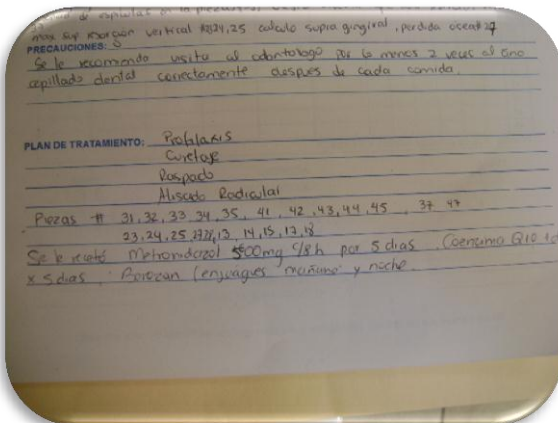 de espiculas en la
max sup vertical #23,24,25 calculo supra gingival, perdida osea # 27
PRECAUCIONES:
Se le recomienda visita al odontologo por lo menos 2 veces al año
cepillado dental correctamente despues de cada comida.
PLAN DE TRATAMIENTO: Profilaxis
Curetaje
Raspado
Alisado Radicular
Piezas # 31, 32, 33, 34, 35, 41, 42, 43, 44, 45, 37 47
23, 24, 25, 13, 14, 15, 17, 18
Se le recetó Metronidazol 500mg c/8h por 5 dias. Coenzima Q10
x 5 dias, (enjuagues mañana y noche.